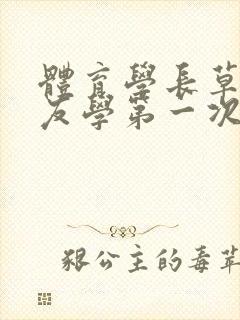 體育學長草
友學第一次
狠公主的毒苹